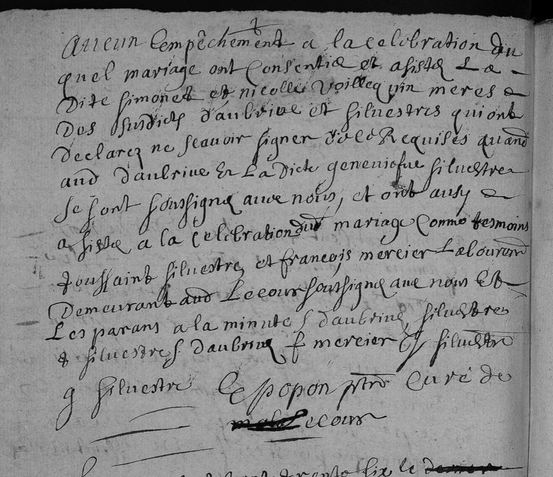 aucun Lempêchement a la celebration du
quel mariage ont Consentie et asisté La
Dite simonet et nicolle Voillequin meres
Des susdicts d'aubrive et silvestres qui ont
Declarez ne scavoir signer Requises quand
aud d'aubrive Et La Dicte geneviefve silvestre
se sont soussigné avec nous, et ont aussy
asisté a la Celebration dud mariage Comme tesmoins
toussaint silvestre et francois mercier
Demeurant aud Lecour soussigné avec nous Et
Les parans a la minute s d'aubrive silvestre
silvestre s d'aubrive f mercier silvestre
g silvestre Le popon ptre Curé de
Lecour
six le